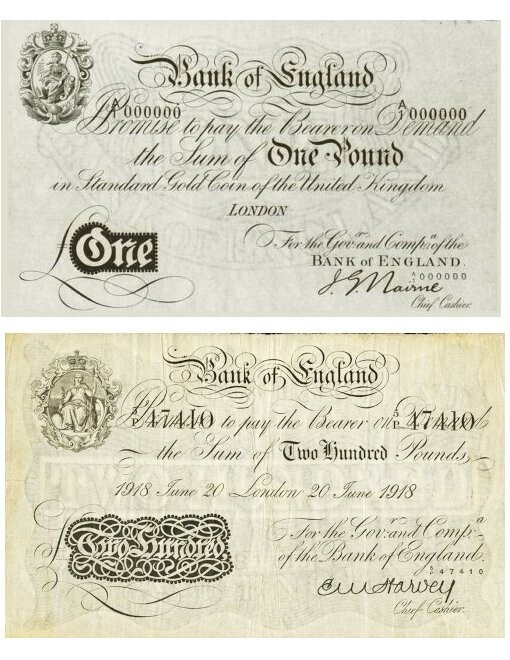 Bank of England
A/1 000000 A/1 000000
Promise to pay the Bearer on Demand
the Sum of One Pound
in Standard Gold Coin of the United Kingdom
LONDON
£ One
For the Govr. and Compa. of the
BANK OF ENGLAND.
A/1 000000
J.G. Nairne
Chief Cashier.
Bank of England
5/P 47410 to pay the Bearer on Demand 5/P 47410
the Sum of Two Hundred Pounds
1918 June 20 London 20 June 1918
£ Two Hundred
For the Govr. and Compa.
of the Bank of England.
5/P 47410
E.M. Harvey
Chief Cashier.